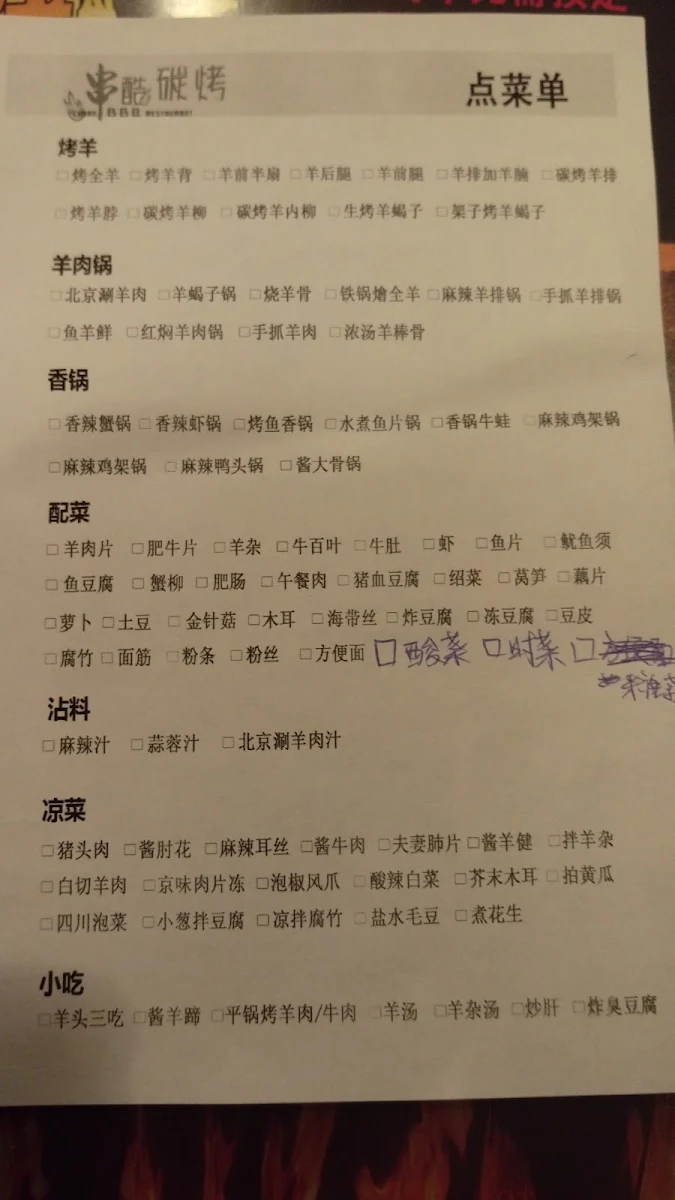 串酷碳烤 点菜单
BBQ RESTAURANT
烤羊
□烤全羊 □烤羊背 □羊前半扇 □羊后腿 □羊前腿 □羊排加羊腩 □碳烤羊排
□烤羊脖 □碳烤羊柳 □碳烤羊内柳 □生烤羊蝎子 □架子烤羊蝎子
羊肉锅
□北京涮羊肉 □羊蝎子锅 □烧羊骨 □铁锅烩全羊 □麻辣羊排锅 □手抓羊排锅
□鱼羊鲜 □红焖羊肉锅 □手抓羊肉 □浓汤羊棒骨
香锅
□香辣蟹锅 □香辣虾锅 □烤鱼香锅 □水煮鱼片锅 □香锅牛蛙 □麻辣鸡架锅
□麻辣鸡架锅 □麻辣鸭头锅 □酱大骨锅
配菜
□羊肉片 □肥牛片 □羊杂 □牛百叶 □牛肚 □虾 □鱼片 □鱿鱼须
□鱼豆腐 □蟹柳 □肥肠 □午餐肉 □猪血豆腐 □绍菜 □莴笋 □藕片
□萝卜 □土豆 □金针菇 □木耳 □海带丝 □炸豆腐 □冻豆腐 □豆皮
□腐竹 □面筋 □粉条 □粉丝 □方便面 □酸菜 □时菜 □
沾料
□麻辣汁 □蒜蓉汁 □北京涮羊肉汁
凉菜
□猪头肉 □酱肘花 □麻辣耳丝 □酱牛肉 □夫妻肺片 □酱羊健 □拌羊杂
□白切羊肉 □京味肉片冻 □泡椒风爪 □酸辣白菜 □芥末木耳 □拍黄瓜
□四川泡菜 □小葱拌豆腐 □凉拌腐竹 □盐水毛豆 □煮花生
小吃
□羊头三吃 □酱羊蹄 □平锅烤羊肉/牛肉 □羊汤 □羊杂汤 □炒肝 □炸臭豆腐